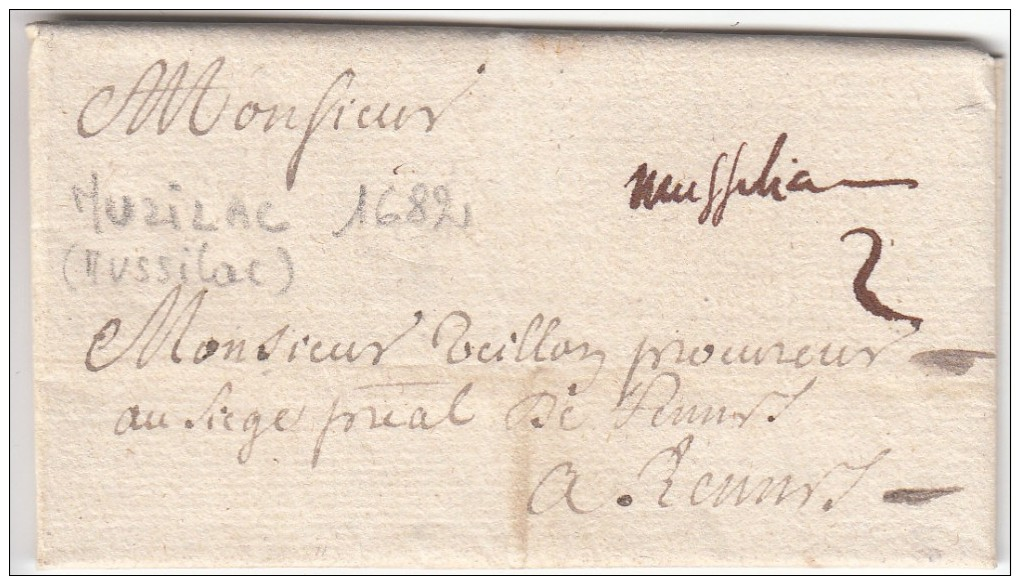 Monsieur
MUZILAC 1682
mussilia
(Mussilac)
2
Monsieur Veillon procureur
au siege préal De Rennes
a Rennes